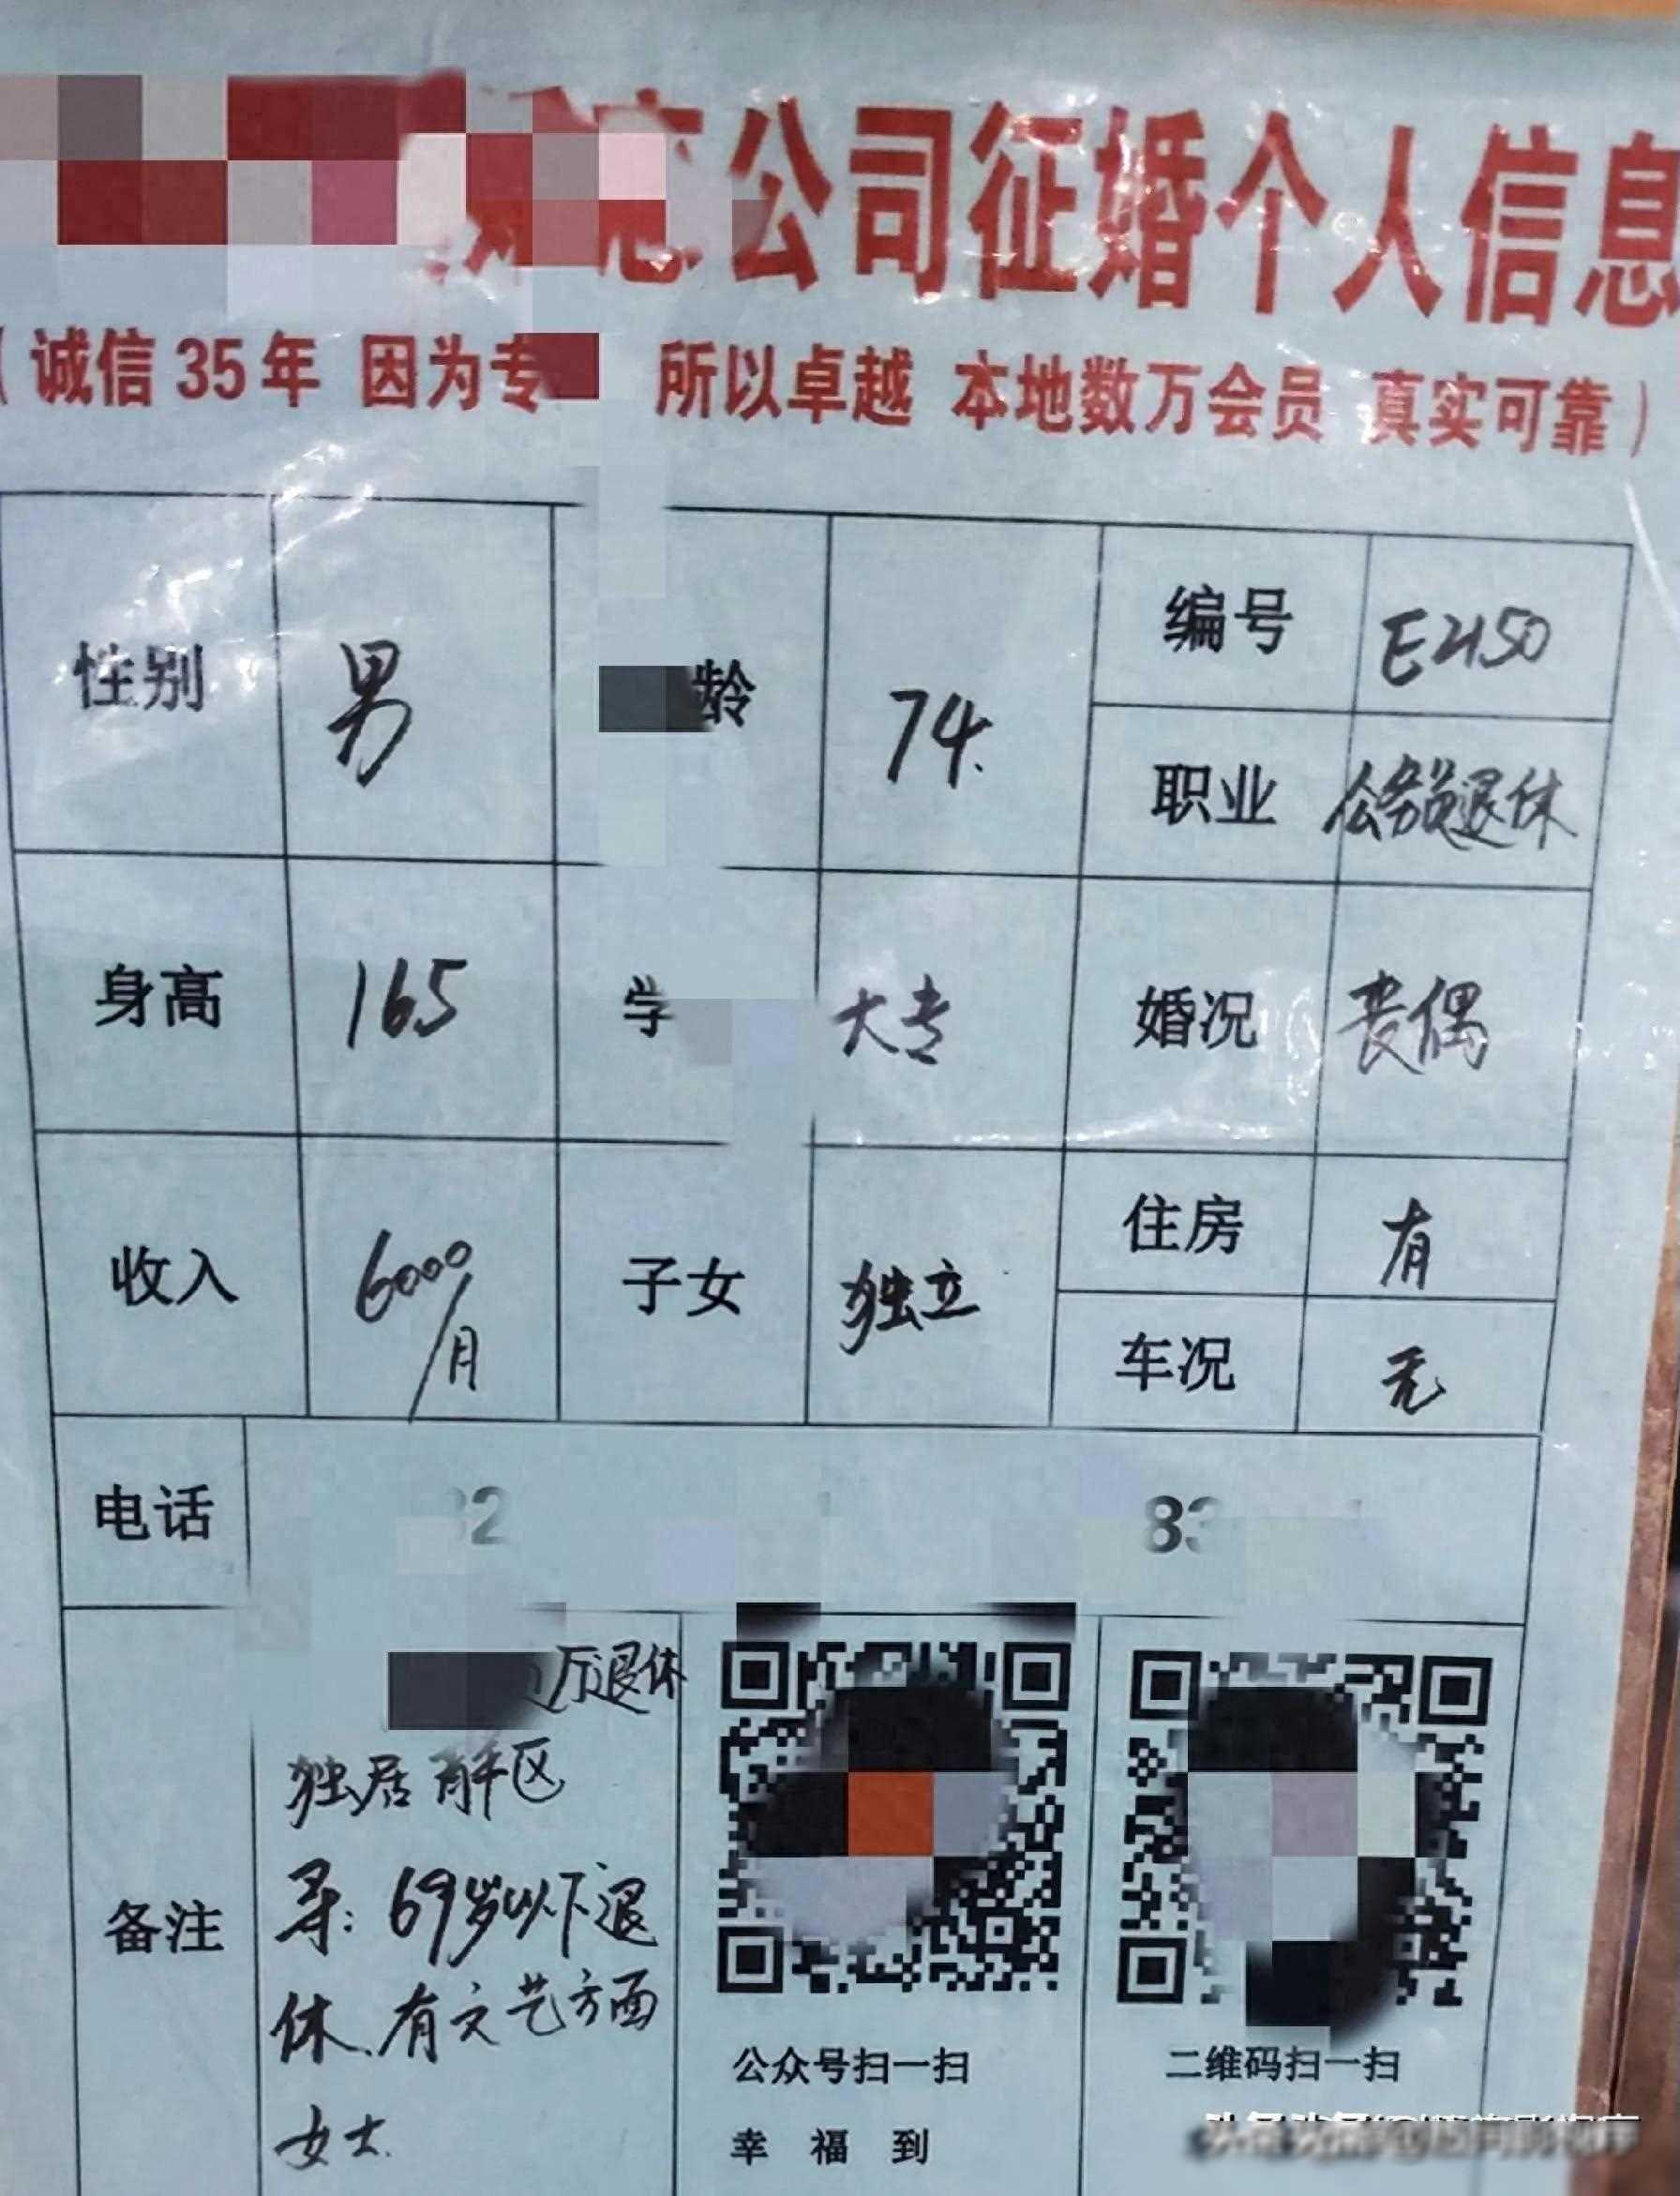 公司征婚个人信息
（诚信35年 因为专 所以卓越 本地数万会员 真实可靠）
性别 男 龄 74. 编号 E2150
职业 公务员退休
身高 165 学 大专 婚况 丧偶
收入 6000/月 子女 独立 住房 有
车况 无
电话 2 83
厅退休
独居 区
备注 寻：69岁以下退
休、有文艺方面
女士.
公众号扫一扫 二维码扫一扫
幸 福 到